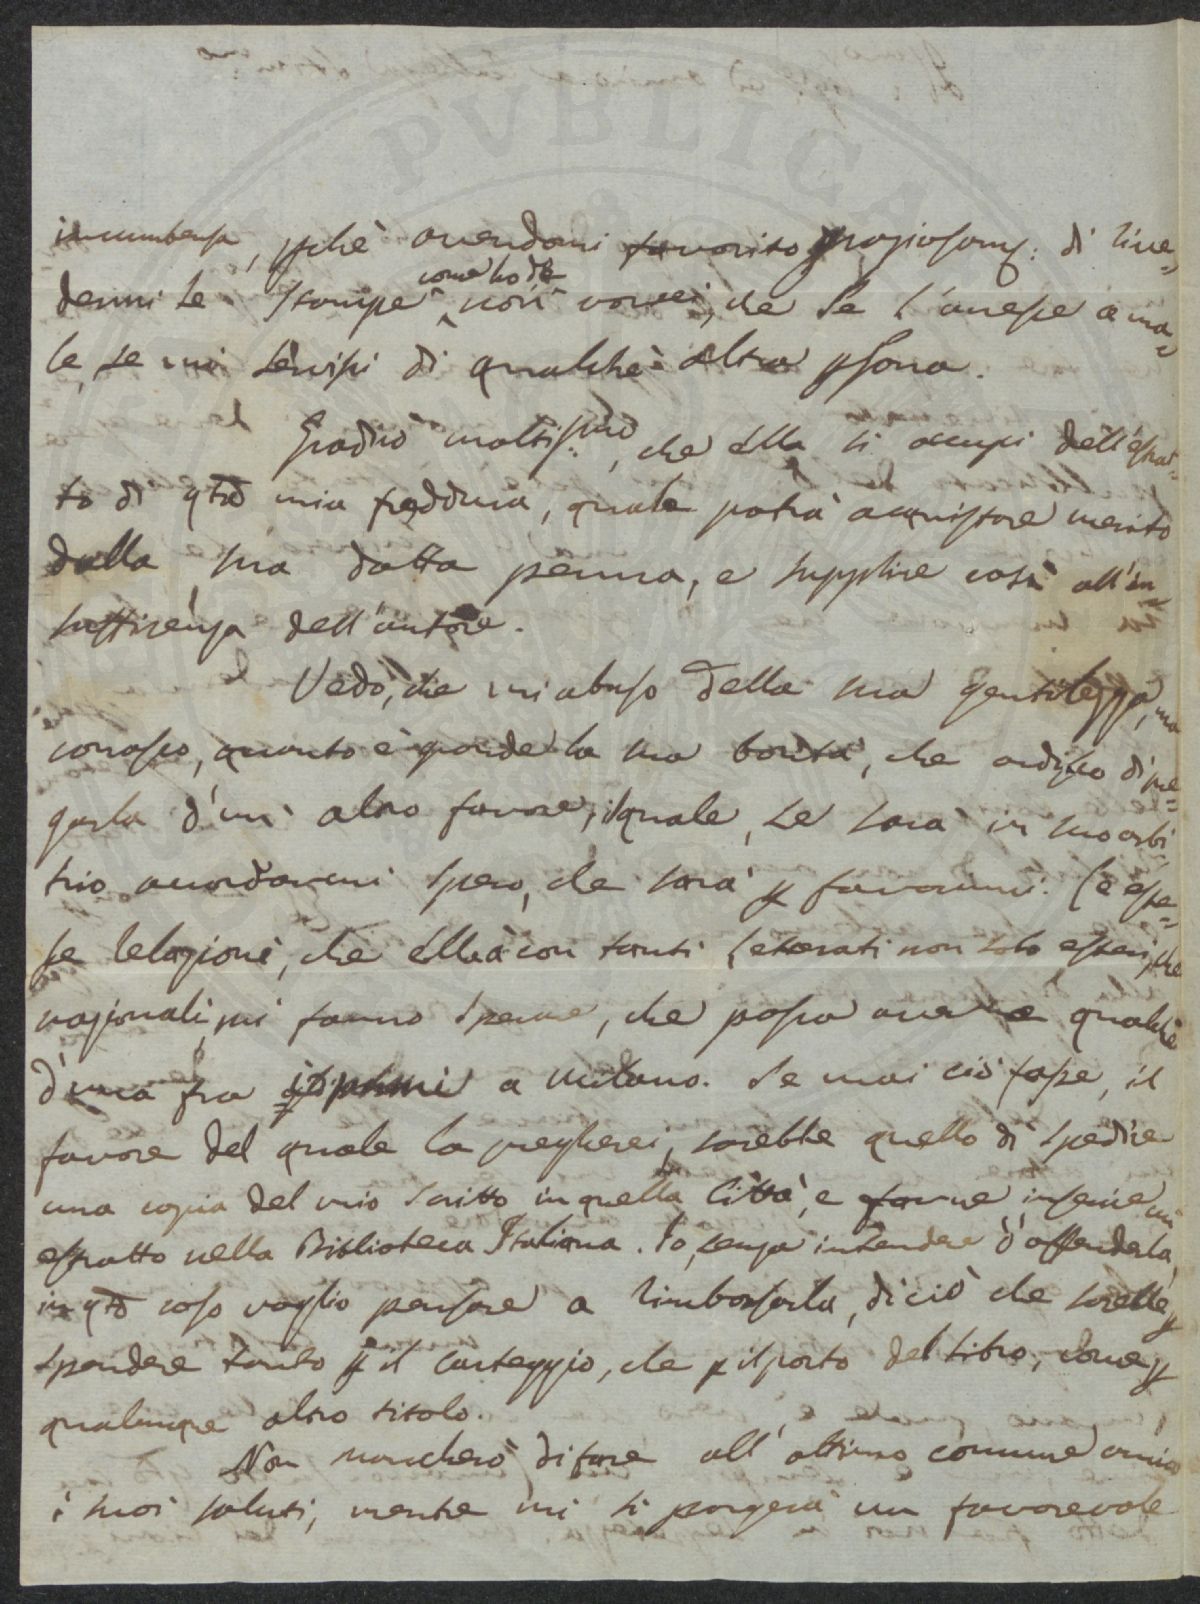 PUBLICA
incumbenza, pchè avendomi favorito graziosam: di rive=
dermi le stampe come ho do non vorrei, che Se l'avesse a ma=
le, se mi servissi di qualche altra psona.
Gradirò moltissmo, che Ella si occupi dell'estrat=
to di qta mia freddura, quale potrà acquistare merito
dalla sua dotta penna, e supplire così all'in=
sufficienza dell'autore.
Vedo, che mi abuso della sua gentilezza, ma
conosco, quanto è grande la sua bontà, che ardisco di pre=
garla d'un altro favore, il quale, se sarà in suo arbi
trio accordarmi spero, che sarà p favorirmi. Le este=
se relazioni, che Ella à con tanti Letterati non solo esteri, che
nazionali, mi fanno sperare, che possa averne qualche
d'uno fra a Milano. Se mai ciò fosse, il
favore del quale la pregherei, sarebbe quello di spedire
una copia del mio Scritto in quella Città, e farne inserire un
estratto nella Biblioteca Italiana. Io, senza intendere d'offenderla,
in qto caso voglio pensare a rimborsarla, di ciò che sarebbe p
spendere tanto p il carteggio, che p il porto del libro, come p
qualunque altro titolo.
Non mancherò di fare all'ottimo comune amico
i suoi saluti, mentre mi si porgerà un favorevole